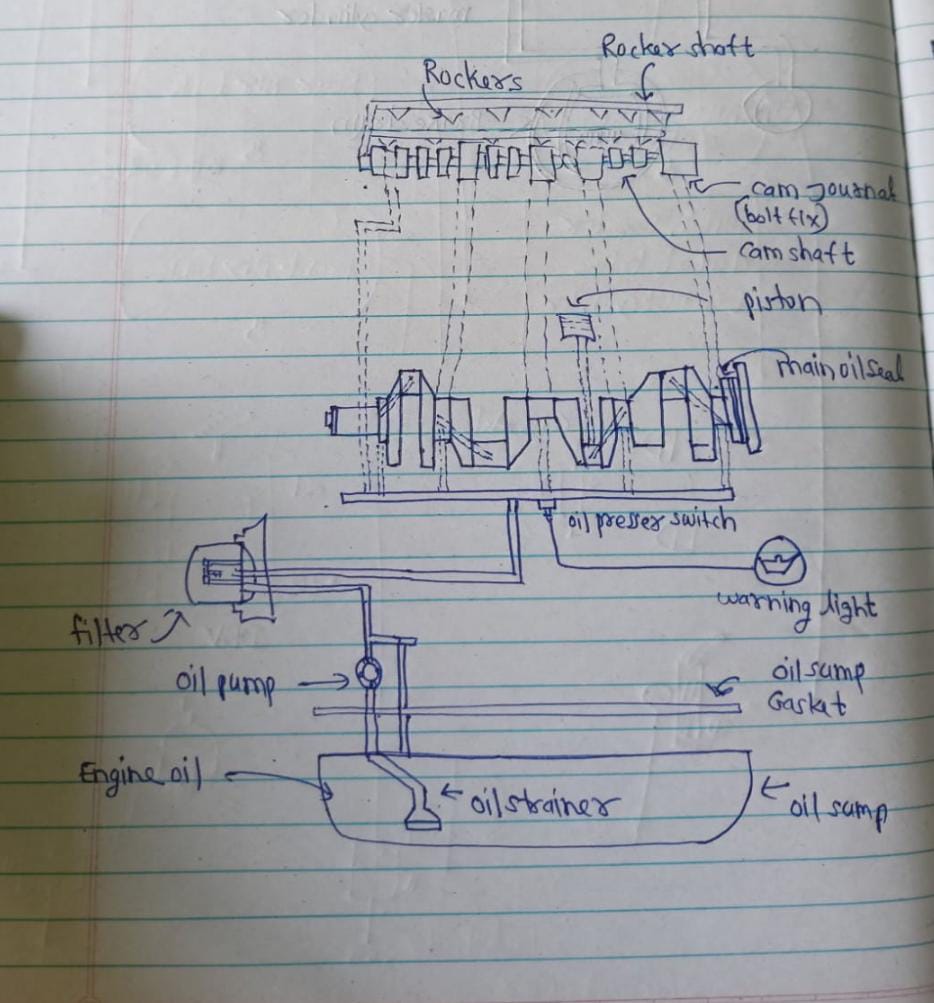 Rocker shaft
Rockers
cam journal
(bolt fix)
camshaft
piston
main oil seal
oil presser switch
warning light
filter
oil pump
oil sump
Gasket
Engine oil
oil strainer
oil sump